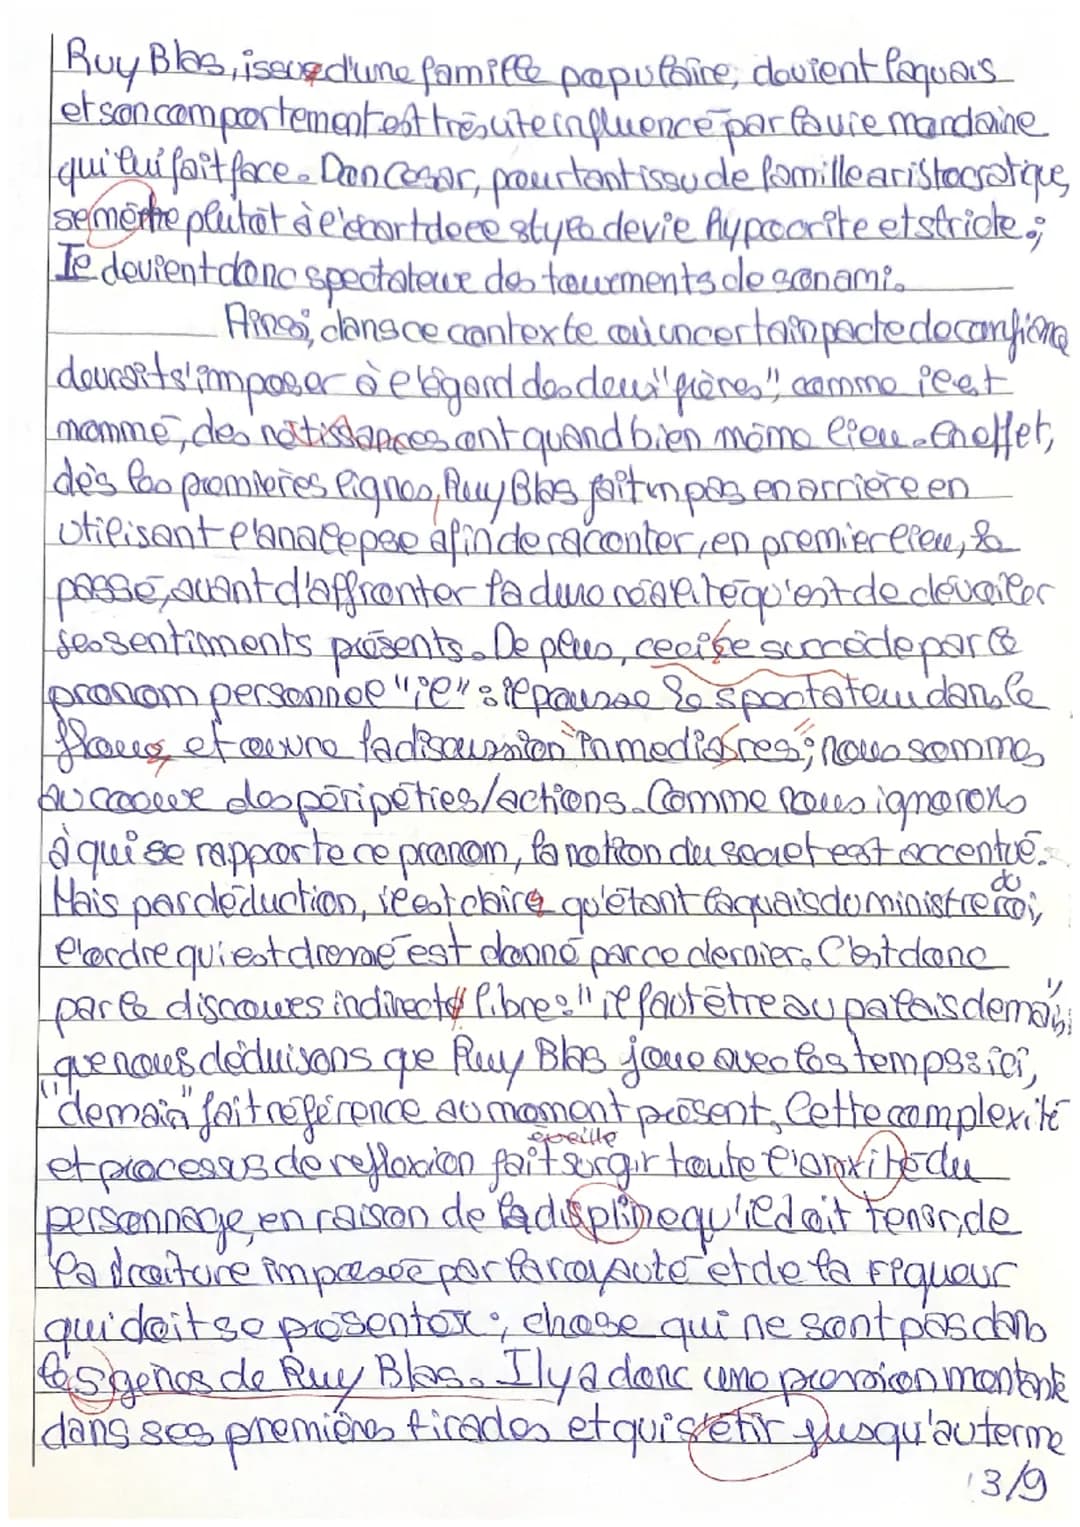 Ruy Blas, issue d'une famille populaire, devient laquais
et son comportement est très vite influencé par la vie mondaine
qui lui fait face. Don César, pourtant issu de famille aristocratique,
se mettre plutôt à l'écart de ce style de vie hypocrite et stricte ;
Il devient donc spectateur des tourments de son ami.
Ainsi, dans ce contexte où un certain pacte de confiance
devrait s'imposer à l'égard des deux "frères", comme il est
nommé, des réticences ont quand bien même lieu. En effet,
dès les premières lignes, Ruy Blas fait un pas en arrière en
utilisant l'analepse afin de raconter, en premier lieu, le
passé, avant d'affronter la dure réalité qu'est de dévoiler
ses sentiments présents. De plus, ceci se succède par le
pronom personnel "il" : il pousse le spectateur dans le
floue et ouvre la discussion "in medias res" ; nous sommes
au coeur des péripéties/actions. Comme nous ignorons
à qui se rapporte ce pronom, la notion du secret est accentué.
Mais par déduction, il est claire qu'étant laquais du ministre du roi,
l'ordre qui est donné par ce dernier. C'est donc
par le discours indirecte libre : "il faut être au palais demain",
que nous déduisons que Ruy Blas joue avec les temps : ici,
"demain" fait référence au moment présent. Cette complexité
et processus de reflexion fait surgir toute l'anxité du
éveille
personnage, en raison de la displine qu'il doit tenir, de
la droiture imposée par la royauté et de la rigueur
qui doit se présenter ; chose qui ne sont pas dans
les gènes de Ruy Blas. Il y a donc une pression montante
dans ses premières tirades et qui s'étir jusqu'au terme
3/9